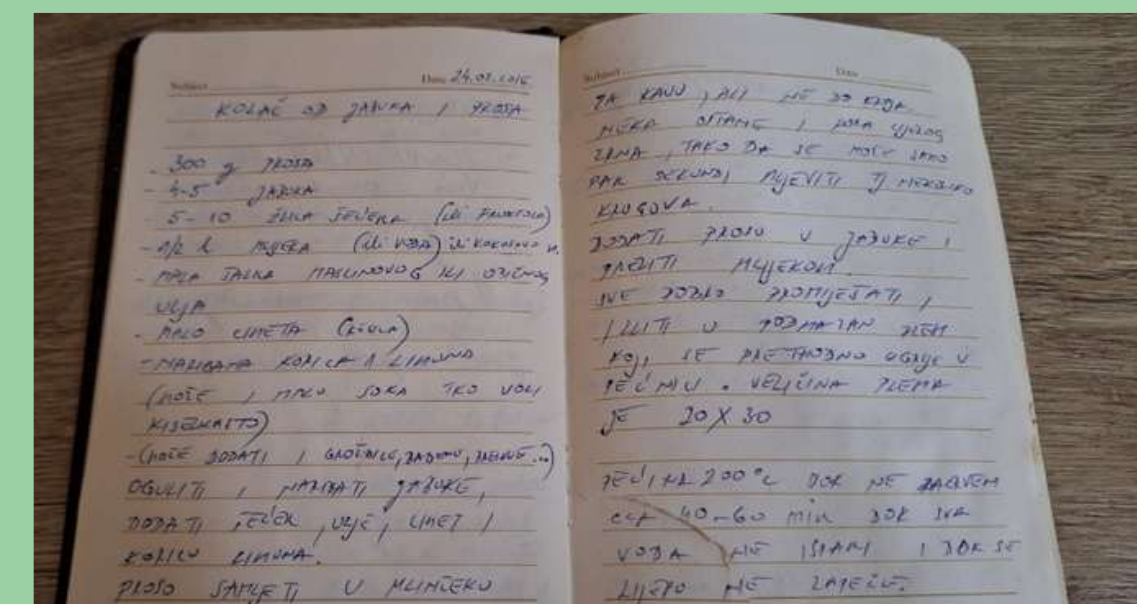 Subject
Date 24.03.2016
KOLAČ OD JABUKA I PROSA
- 300 g PROSA
- 4-5 JABUKA
- 5-10 ŽLICA ŠEĆERA (ili FRUKTOZA)
- 1/2 l MLIJEKA (ili VODA) ili KOKOSOVO M.
- MALA ŠALICA MASLINOVOG ILI OBIČNOG
ULJA
- MALO CIMETA (
- NARIBANA KORICA 1 LIMUNA
(MOŽE I MALO SOKA TKO VOLI
KISELKASTO)
- (MOŽE DODATI I GROŽĐICE, BADEME, ...)
OGULITI I NARIBATI JABUKE,
DODATI ŠEĆER, ULJE, CIMET I
KORICU LIMUNA.
PROSO SAMLJETI U MLINČEKU
Subject
Date
ZA KAVU, ALI NE DO KRAJA.
NEKA OSTANE I POLA CIJELOG
ZRNA, TAKO DA SE MOŽE SAMO
PAR SEKUNDI MLJEVITI TJ NEKOLIKO
KRUGOVA.
DODATI PROSO U JABUKE I
ZALITI MLIJEKOM.
SVE DOBRO PROMIJEŠATI,
IZLITI U PODMAZAN PLEH
KOJI SE PRETHODNO UGRIJE U
PEĆNICI. VELIČINA PLEHA
JE 20 X 30
PEĆI NA 200°C DOK NE
CCA 40-60 min DOK SVA
VODA NE ISPARI I DOK SE
LIJEPO NE ZAPEČE.